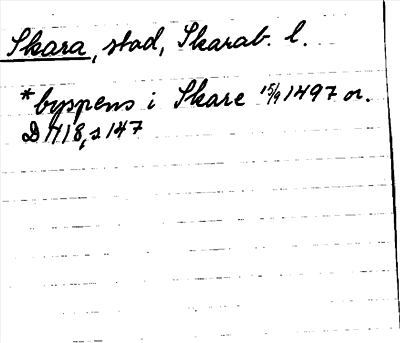 Skara, stad, Skarab. l.
*byspens i Skare 15/9 1497 or.
D 1418, s 147